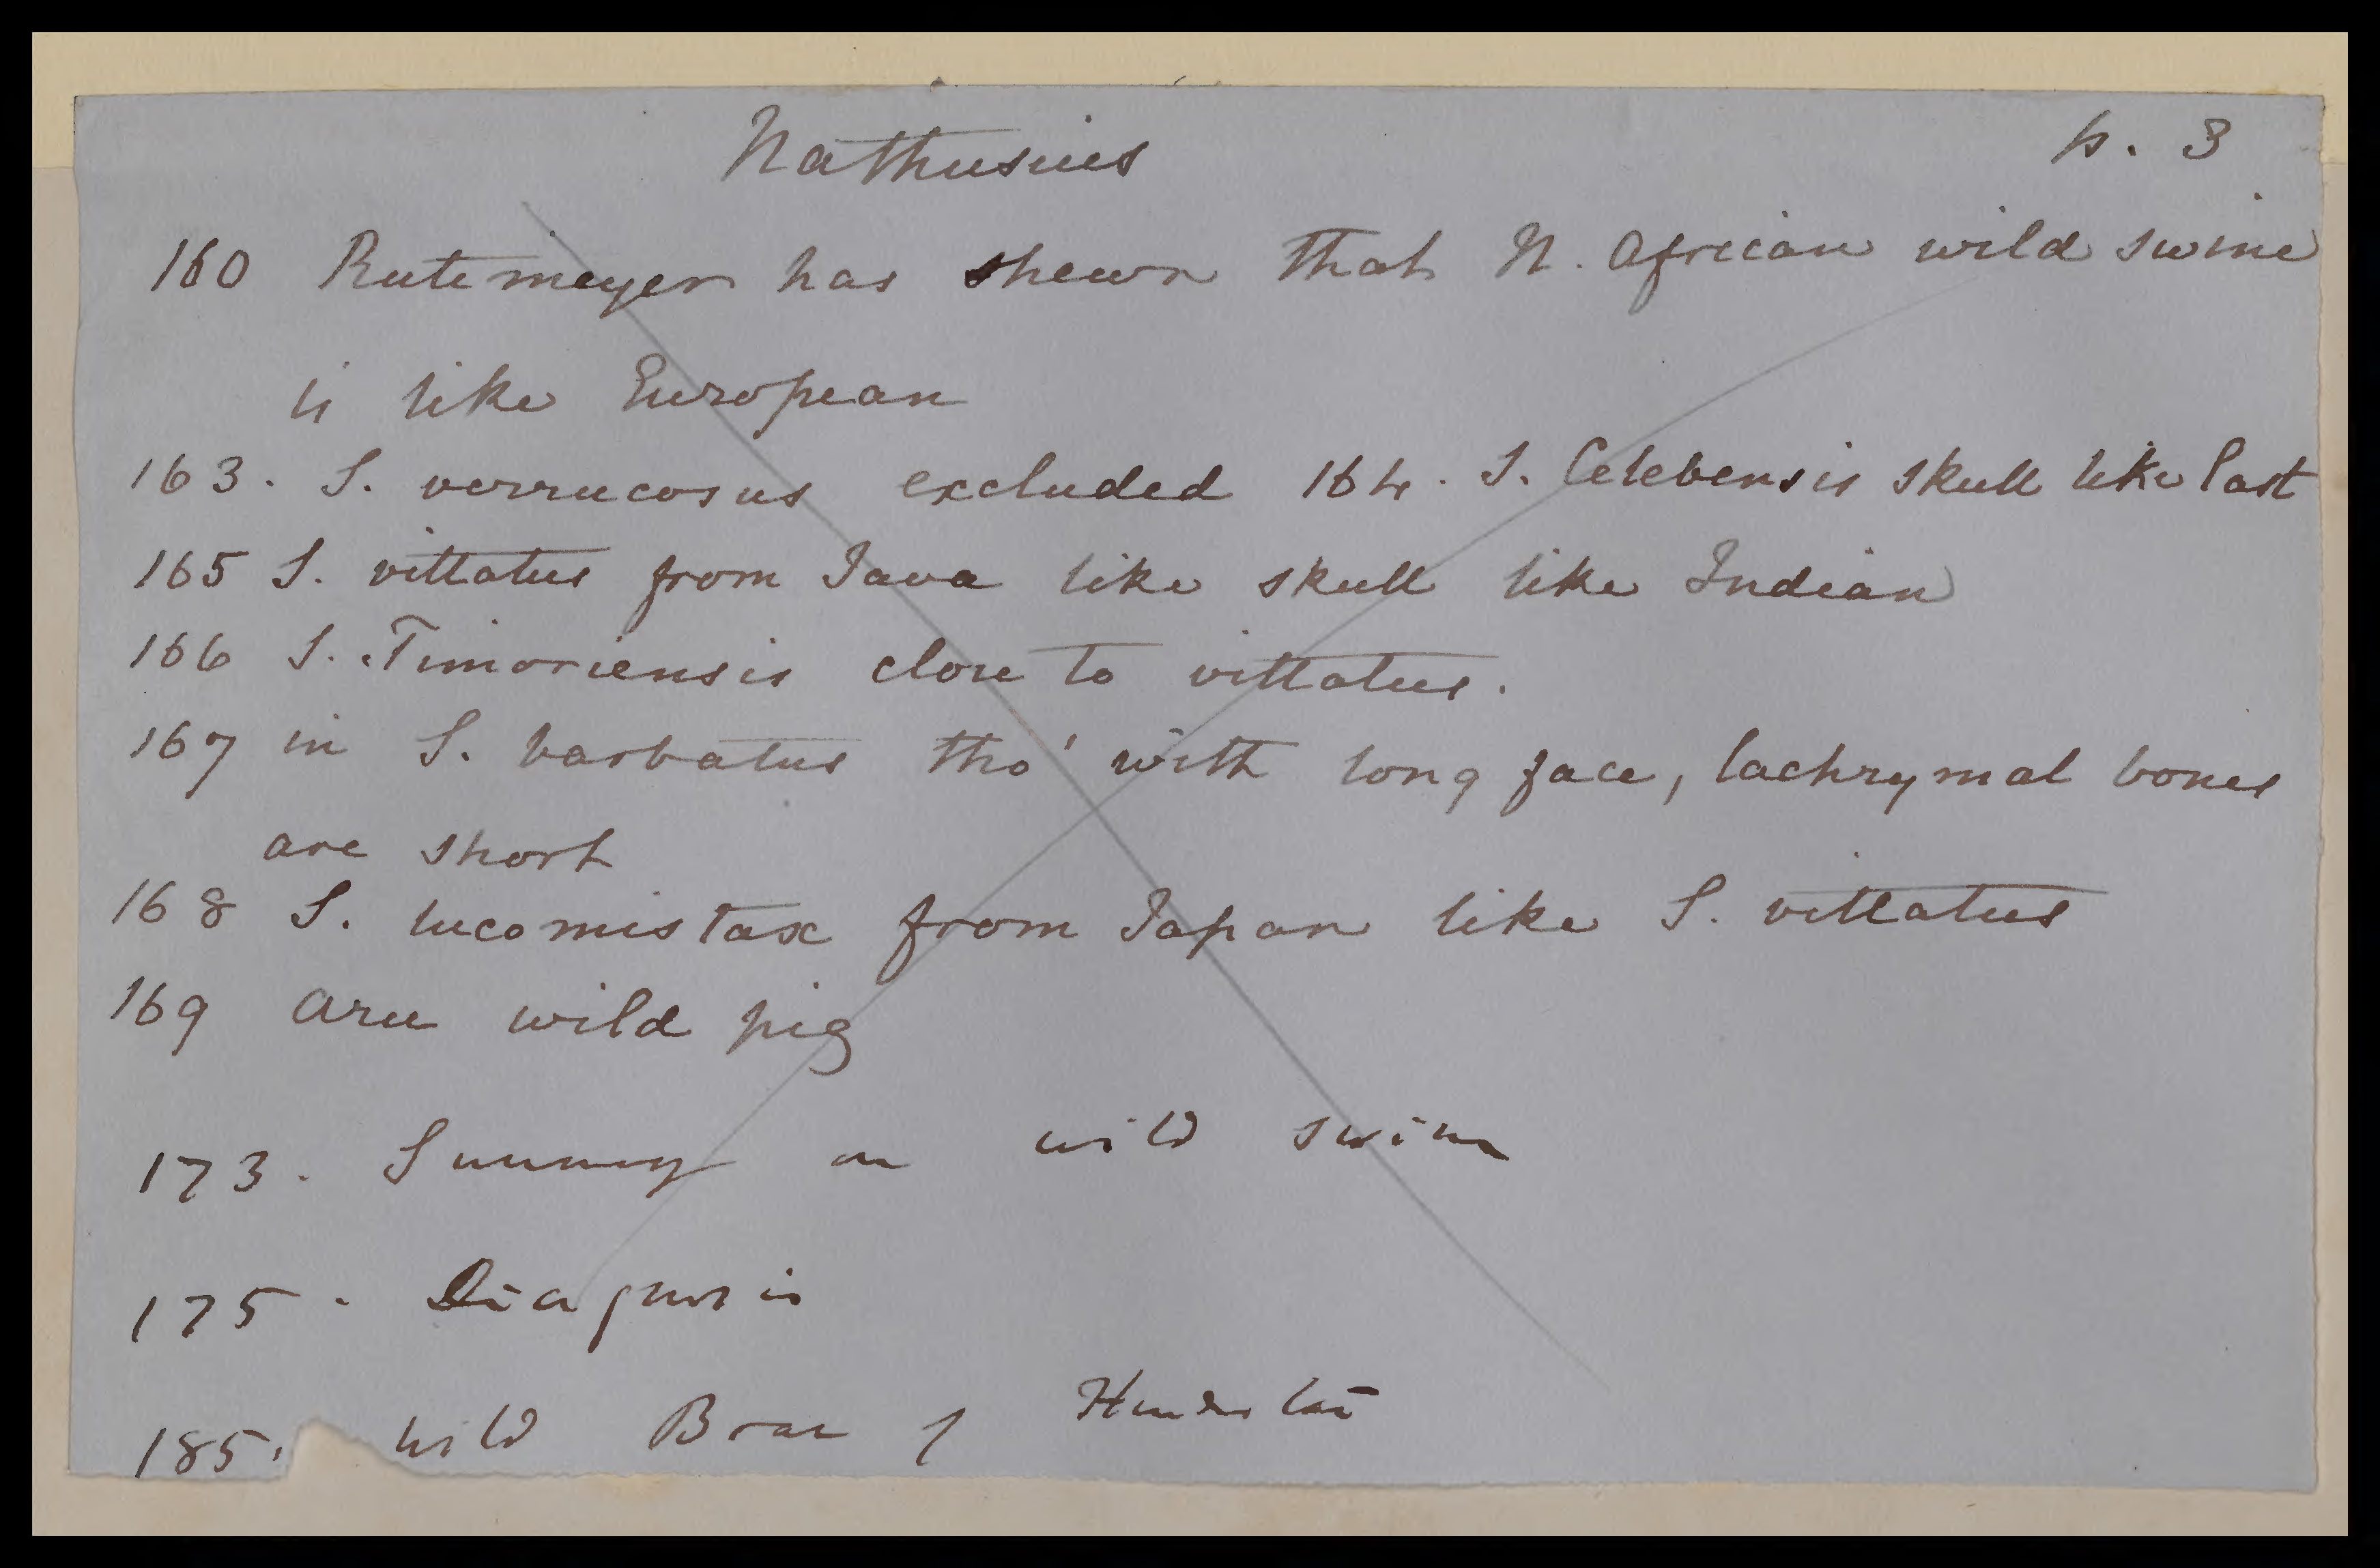 Nathusius p. 3
160 Rutemeyer has shewn that N. African wild swine
is like European
163. S. verrucosus excluded 164. S. Celebensis skull like last
165 S. vittatus from Java like skull like Indian
166 S. Timoriensis close to vittatus.
167 in S. barbatus tho' with long face, lachrymal bones
are short
168 S. lucomistax from Japan like S. vittatus
169 Aru wild pig
173. Summary on wild swine
175. Diagnosis
185. Wild Boar of